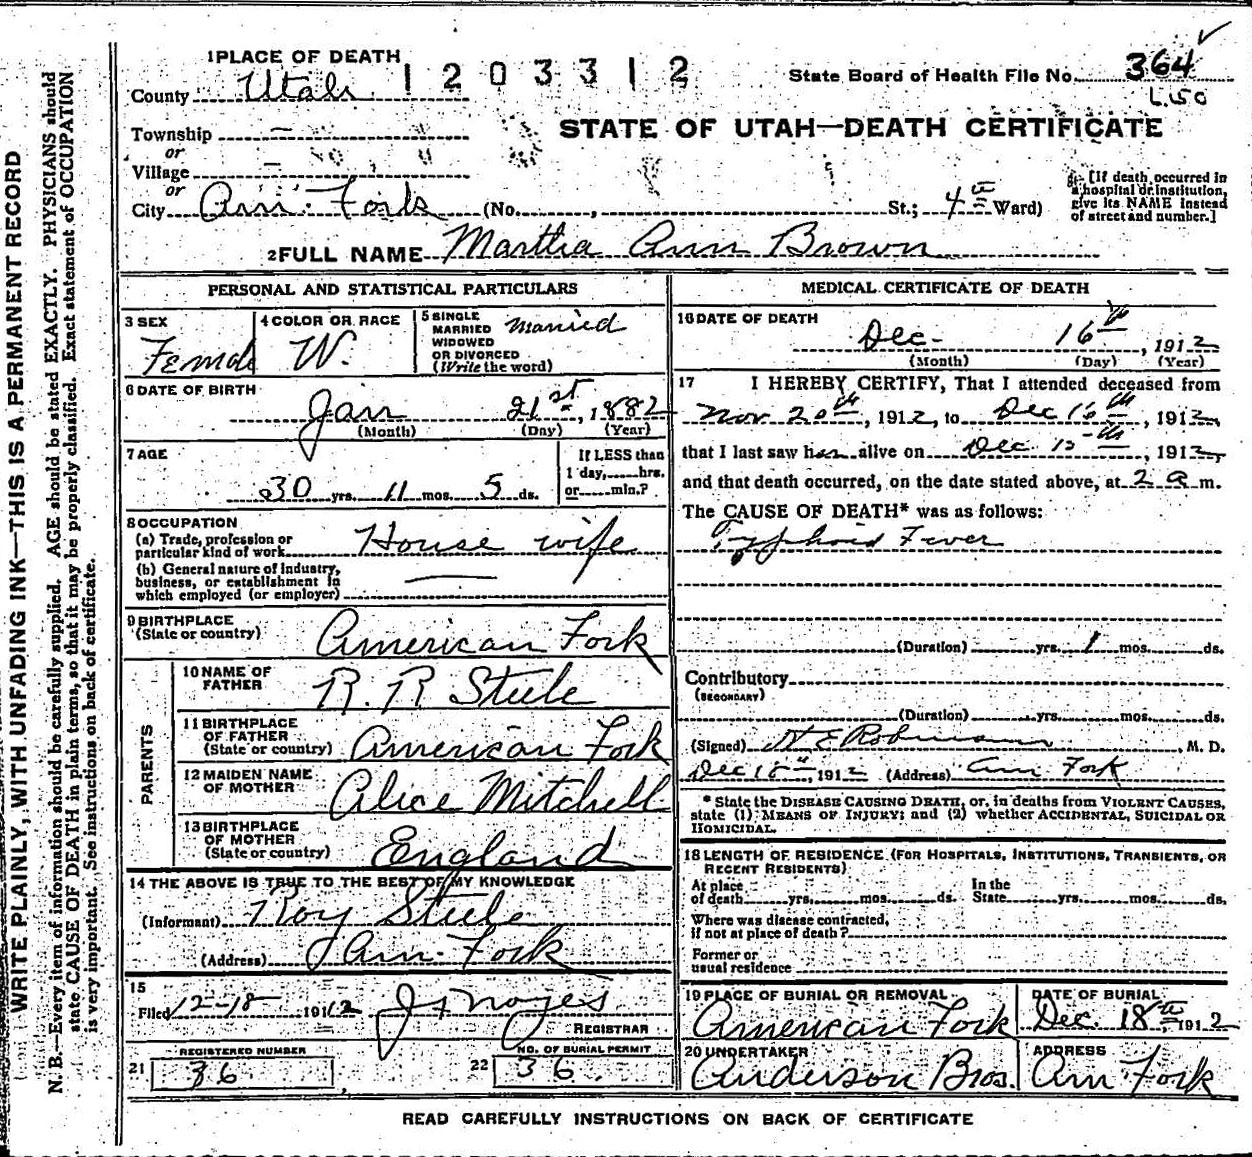 WRITE PLAINLY, WITH UNFADING INK—THIS IS A PERMANENT RECORD
N. B.—Every item of information should be carefully supplied. AGE should be stated EXACTLY. PHYSICIANS should
state CAUSE OF DEATH in plain terms, so that it may be properly classified. Exact statement of OCCUPATION
is very important. See instructions on back of certificate.
1 PLACE OF DEATH
1203312
State Board of Health File No. 364
L150
County Utah
STATE OF UTAH—DEATH CERTIFICATE
Township –
or
Village –
or
City Am. Fork (No. , St.; 4th Ward)
[If death occurred in
a hospital or institution,
give its NAME instead
of street and number.]
2 FULL NAME Martha Ann Brown
PERSONAL AND STATISTICAL PARTICULARS
3 SEX
Female
4 COLOR OR RACE
W.
5 SINGLE
MARRIED
WIDOWED
OR DIVORCED
(Write the word)
Married
6 DATE OF BIRTH
Jan 21st, 1882
(Month) (Day) (Year)
7 AGE
30 yrs. 11 mos. 5 ds.
If LESS than
1 day, hrs.
or min.?
8 OCCUPATION
(a) Trade, profession or
particular kind of work House wife
(b) General nature of industry,
business, or establishment in
which employed (or employer) —
9 BIRTHPLACE
(State or country) American Fork
PARENTS
10 NAME OF
FATHER R. R Steele
11 BIRTHPLACE
OF FATHER
(State or country) American Fork
12 MAIDEN NAME
OF MOTHER Alice Mitchell
13 BIRTHPLACE
OF MOTHER
(State or country) England
14 THE ABOVE IS TRUE TO THE BEST OF MY KNOWLEDGE
(Informant) Roy Steele
(Address) Am. Fork
15
Filed 12-18 1912 Noyes
REGISTRAR
REGISTERED NUMBER
21 36
NO. OF BURIAL PERMIT
22 36.
MEDICAL CERTIFICATE OF DEATH
16 DATE OF DEATH
Dec. 16th, 1912
(Month) (Day) (Year)
17 I HEREBY CERTIFY, That I attended deceased from
Nov 20th, 1912, to Dec 16th, 1912,
that I last saw her alive on Dec. 15th, 1912,
and that death occurred, on the date stated above, at 2 a m.
The CAUSE OF DEATH* was as follows:
Typhoid Fever
(Duration) yrs. 1 mos. ds.
Contributory
(SECONDARY)
(Duration) yrs. mos. ds.
(Signed) , M. D.
Dec 18th, 1912 (Address) Am Fork
* State the DISEASE CAUSING DEATH, or, in deaths from VIOLENT CAUSES,
state (1) MEANS OF INJURY; and (2) whether ACCIDENTAL, SUICIDAL OR
HOMICIDAL.
18 LENGTH OF RESIDENCE (FOR HOSPITALS, INSTITUTIONS, TRANSIENTS, OR
RECENT RESIDENTS)
At place
of death yrs. mos. ds.
In the
State yrs. mos. ds.
Where was disease contracted,
if not at place of death?
Former or
usual residence
19 PLACE OF BURIAL OR REMOVAL
American Fork
DATE OF BURIAL
Dec. 18th, 1912
20 UNDERTAKER
Anderson Bros.
ADDRESS
Am. Fork
READ CAREFULLY INSTRUCTIONS ON BACK OF CERTIFICATE